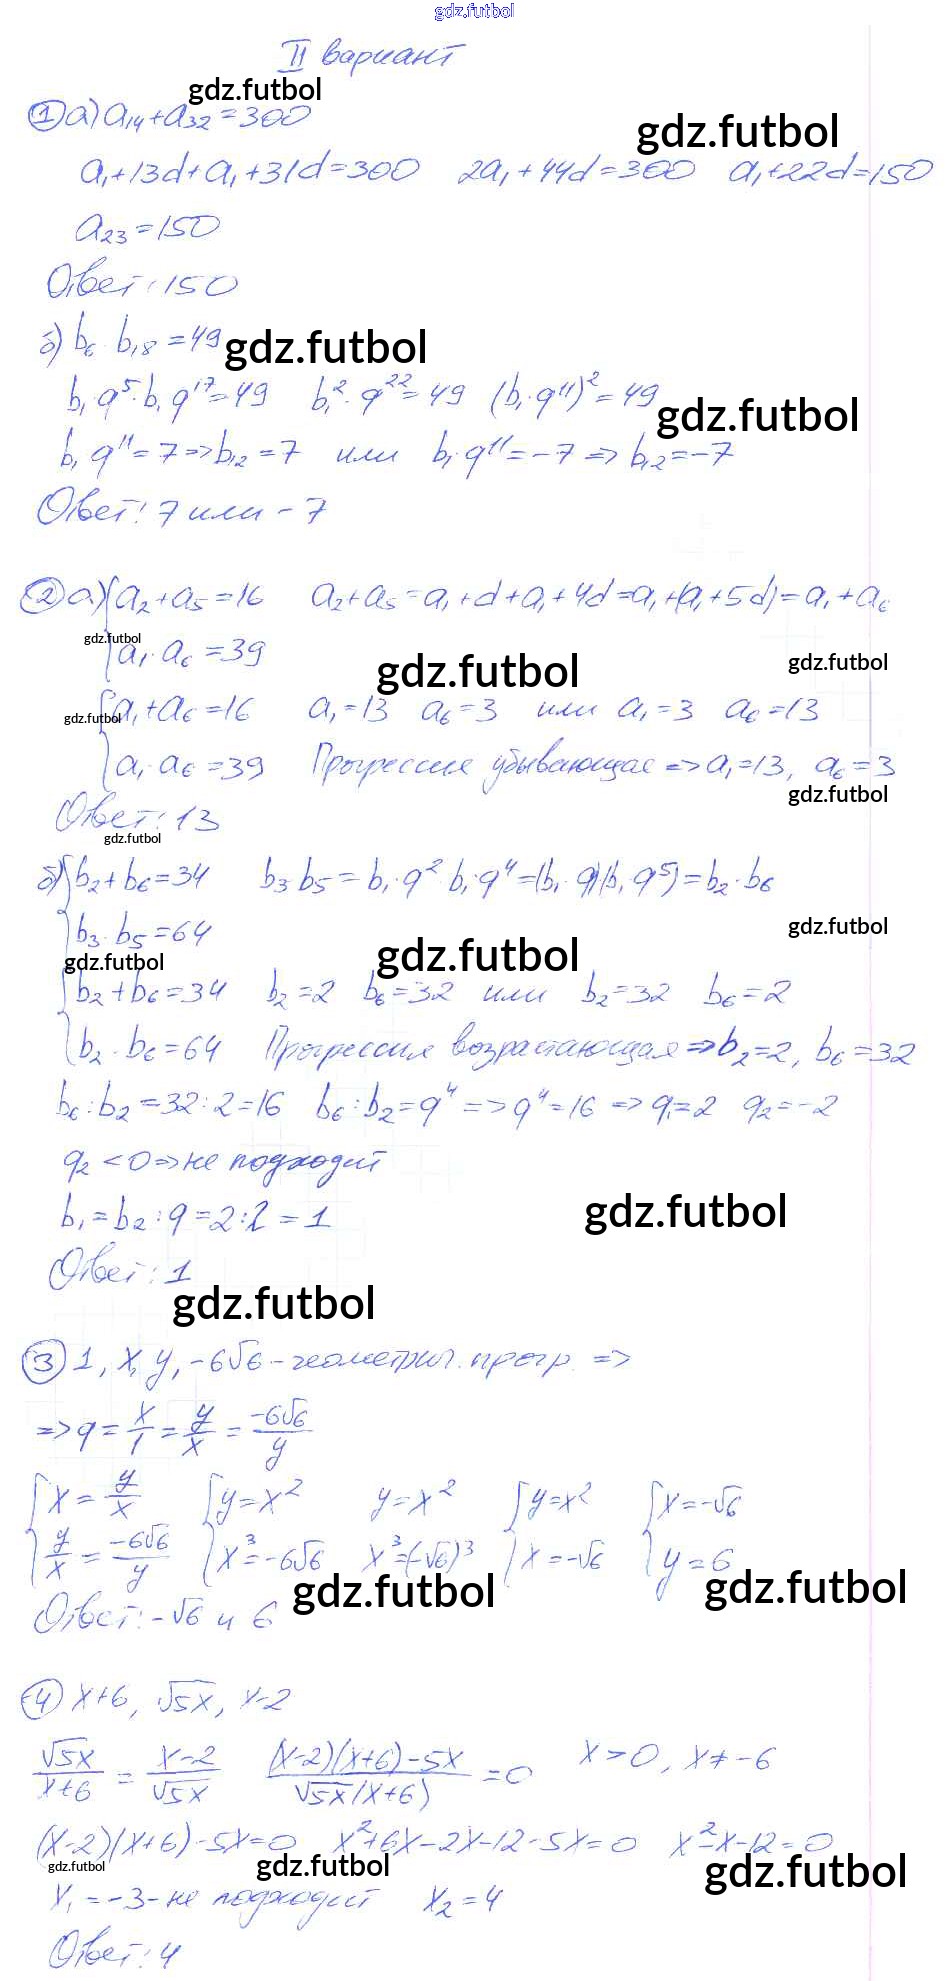 gdz.futbol
II вариант
gdz.futbol
1 а) a₁₄+a₃₂=300
gdz.futbol
a₁+13d+a₁+31d=300 2a₁+44d=300 a₁+22d=150
a₂₃=150
Ответ: 150
б) b₆·b₁₈=49
gdz.futbol
b₁·q⁵·b₁q¹⁷=49 b₁²·q²²=49 (b₁·q¹¹)²=49
gdz.futbol
b₁q¹¹=7=>b₁₂=7 или b₁·q¹¹=-7=>b₁₂=-7
Ответ: 7 или -7
2 а) {a₂+a₅=16 a₂+a₅=a₁+d+a₁+4d=a₁+(a₁+5d)=a₁+a₆
gdz.futbol
a₁·a₆=39
gdz.futbol
gdz.futbol
{a₁+a₆=16 a₁=13 a₆=3 или a₁=3 a₆=13
gdz.futbol
a₁·a₆=39 Прогрессия убывающая=>a₁=13, a₆=3
gdz.futbol
Ответ: 13
gdz.futbol
б) {b₂+b₆=34 b₃·b₅=b₁·q²·b₁·q⁴=(b₁·q)(b₁·q⁵)=b₂·b₆
b₃·b₅=64
gdz.futbol
gdz.futbol
gdz.futbol
{b₂+b₆=34 b₂=2 b₆=32 или b₂=32 b₆=2
b₂·b₆=64 Прогрессия возрастающая=>b₂=2, b₆=32
b₆:b₂=32:2=16 b₆:b₂=q⁴=>q⁴=16=>q₁=2 q₂=-2
q₂<0=>не подходит
b₁=b₂:q=2:2=1
gdz.futbol
Ответ: 1
gdz.futbol
3 1, x, y, -6√6-геометрич. прогр. =>
=>q=x/1=y/x=-6√6/y
{x=y/x {y=x² y=x² {y=x² {x=-√6
y/x=-6√6/y x³=-6√6 x³=(-√6)³ x=-√6 y=6
gdz.futbol
gdz.futbol
Ответ: -√6 и 6
4 x+6, √5x, x-2
√5x/(x+6)=(x-2)/√5x ((x-2)(x+6)-5x)/(√5x(x+6))=0 x>0, x≠-6
(x-2)(x+6)-5x=0 x²+6x-2x-12-5x=0 x²-x-12=0
gdz.futbol
gdz.futbol
gdz.futbol
x₁=-3-не подходит x₂=4
Ответ: 4